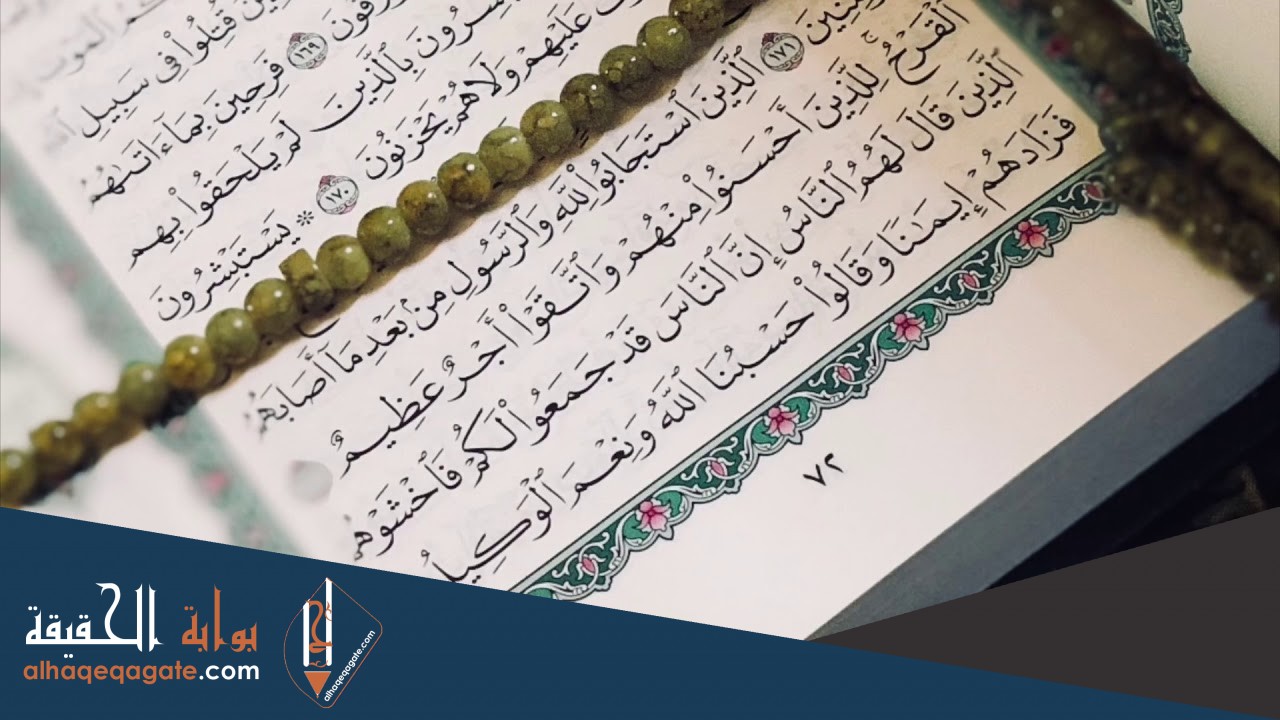 قُتِلُواْ فِى سَبِيلِ
١٦٩ فَرِحِينَ بِمَآ ءَاتَىٰهُمُ
بِٱلَّذِينَ لَمْ يَلْحَقُواْ بِهِم
عَلَيْهِمْ وَلَا هُمْ يَحْزَنُونَ ١٧٠ ۞ يَسْتَبْشِرُونَ
١٧١ ٱلَّذِينَ ٱسْتَجَابُواْ لِلَّهِ وَٱلرَّسُولِ مِنۢ بَعْدِ مَآ أَصَابَهُمُ
ٱلْقَرْحُ ۚ لِلَّذِينَ أَحْسَنُواْ مِنْهُمْ وَٱتَّقَوْاْ أَجْرٌ عَظِيمٌ
ٱلَّذِينَ قَالَ لَهُمُ ٱلنَّاسُ إِنَّ ٱلنَّاسَ قَدْ جَمَعُواْ لَكُمْ فَٱخْشَوْهُمْ
فَزَادَهُمْ إِيمَٰنًا وَقَالُواْ حَسْبُنَا ٱللَّهُ وَنِعْمَ ٱلْوَكِيلُ
٧٢
بوابة الحقيقة
alhaqeqagate.com
alhaqeqagate.com